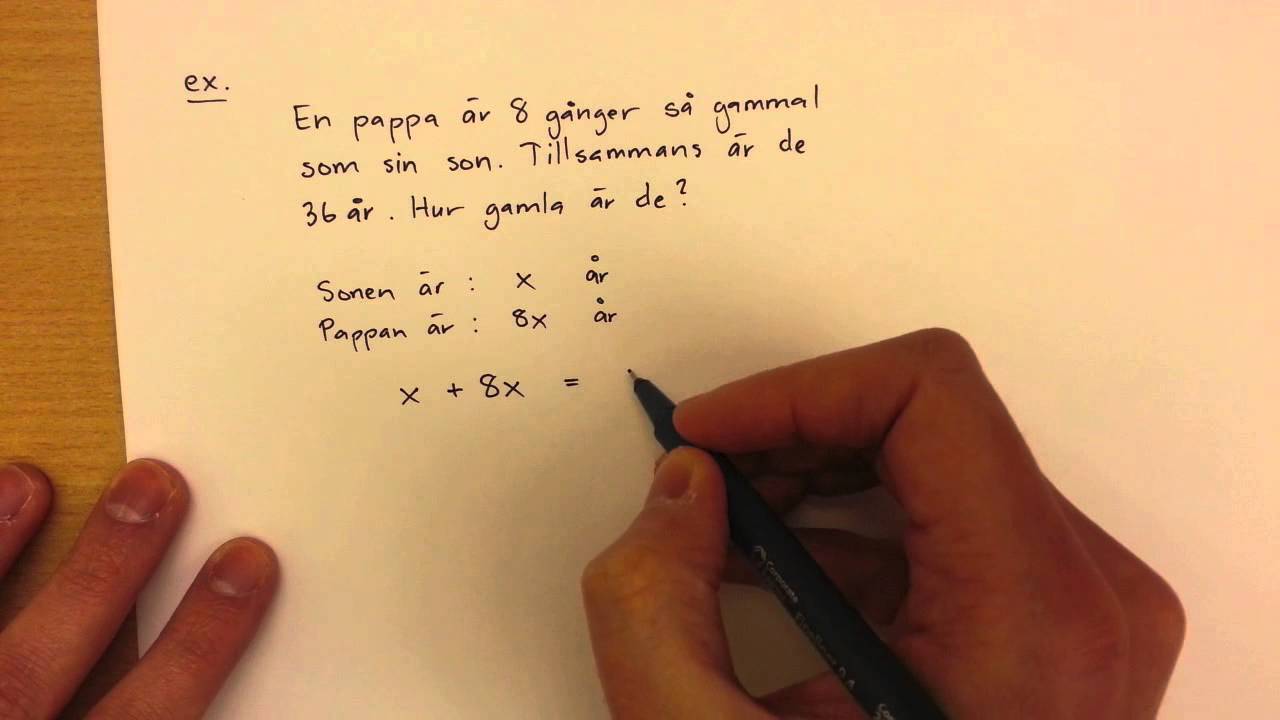 ex.
En pappa är 8 gånger så gammal
som sin son. Tillsammans är de
36 år. Hur gamla är de?
Sonen är : x år
Pappan är : 8x år
x + 8x =